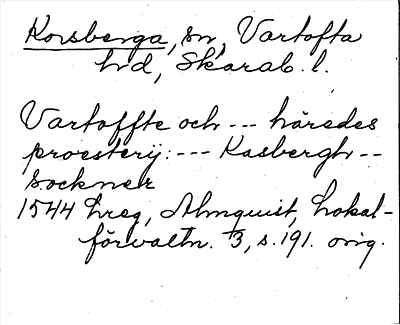 Korsberga, sn, Vartofta
hd, Skarab. l.
Vartoffte och --- häredes
proesterij: --- Kasbergh --
sockner
1544 hreg, Almquist, Lokal-
förvaltn. 3, s. 191. orig.